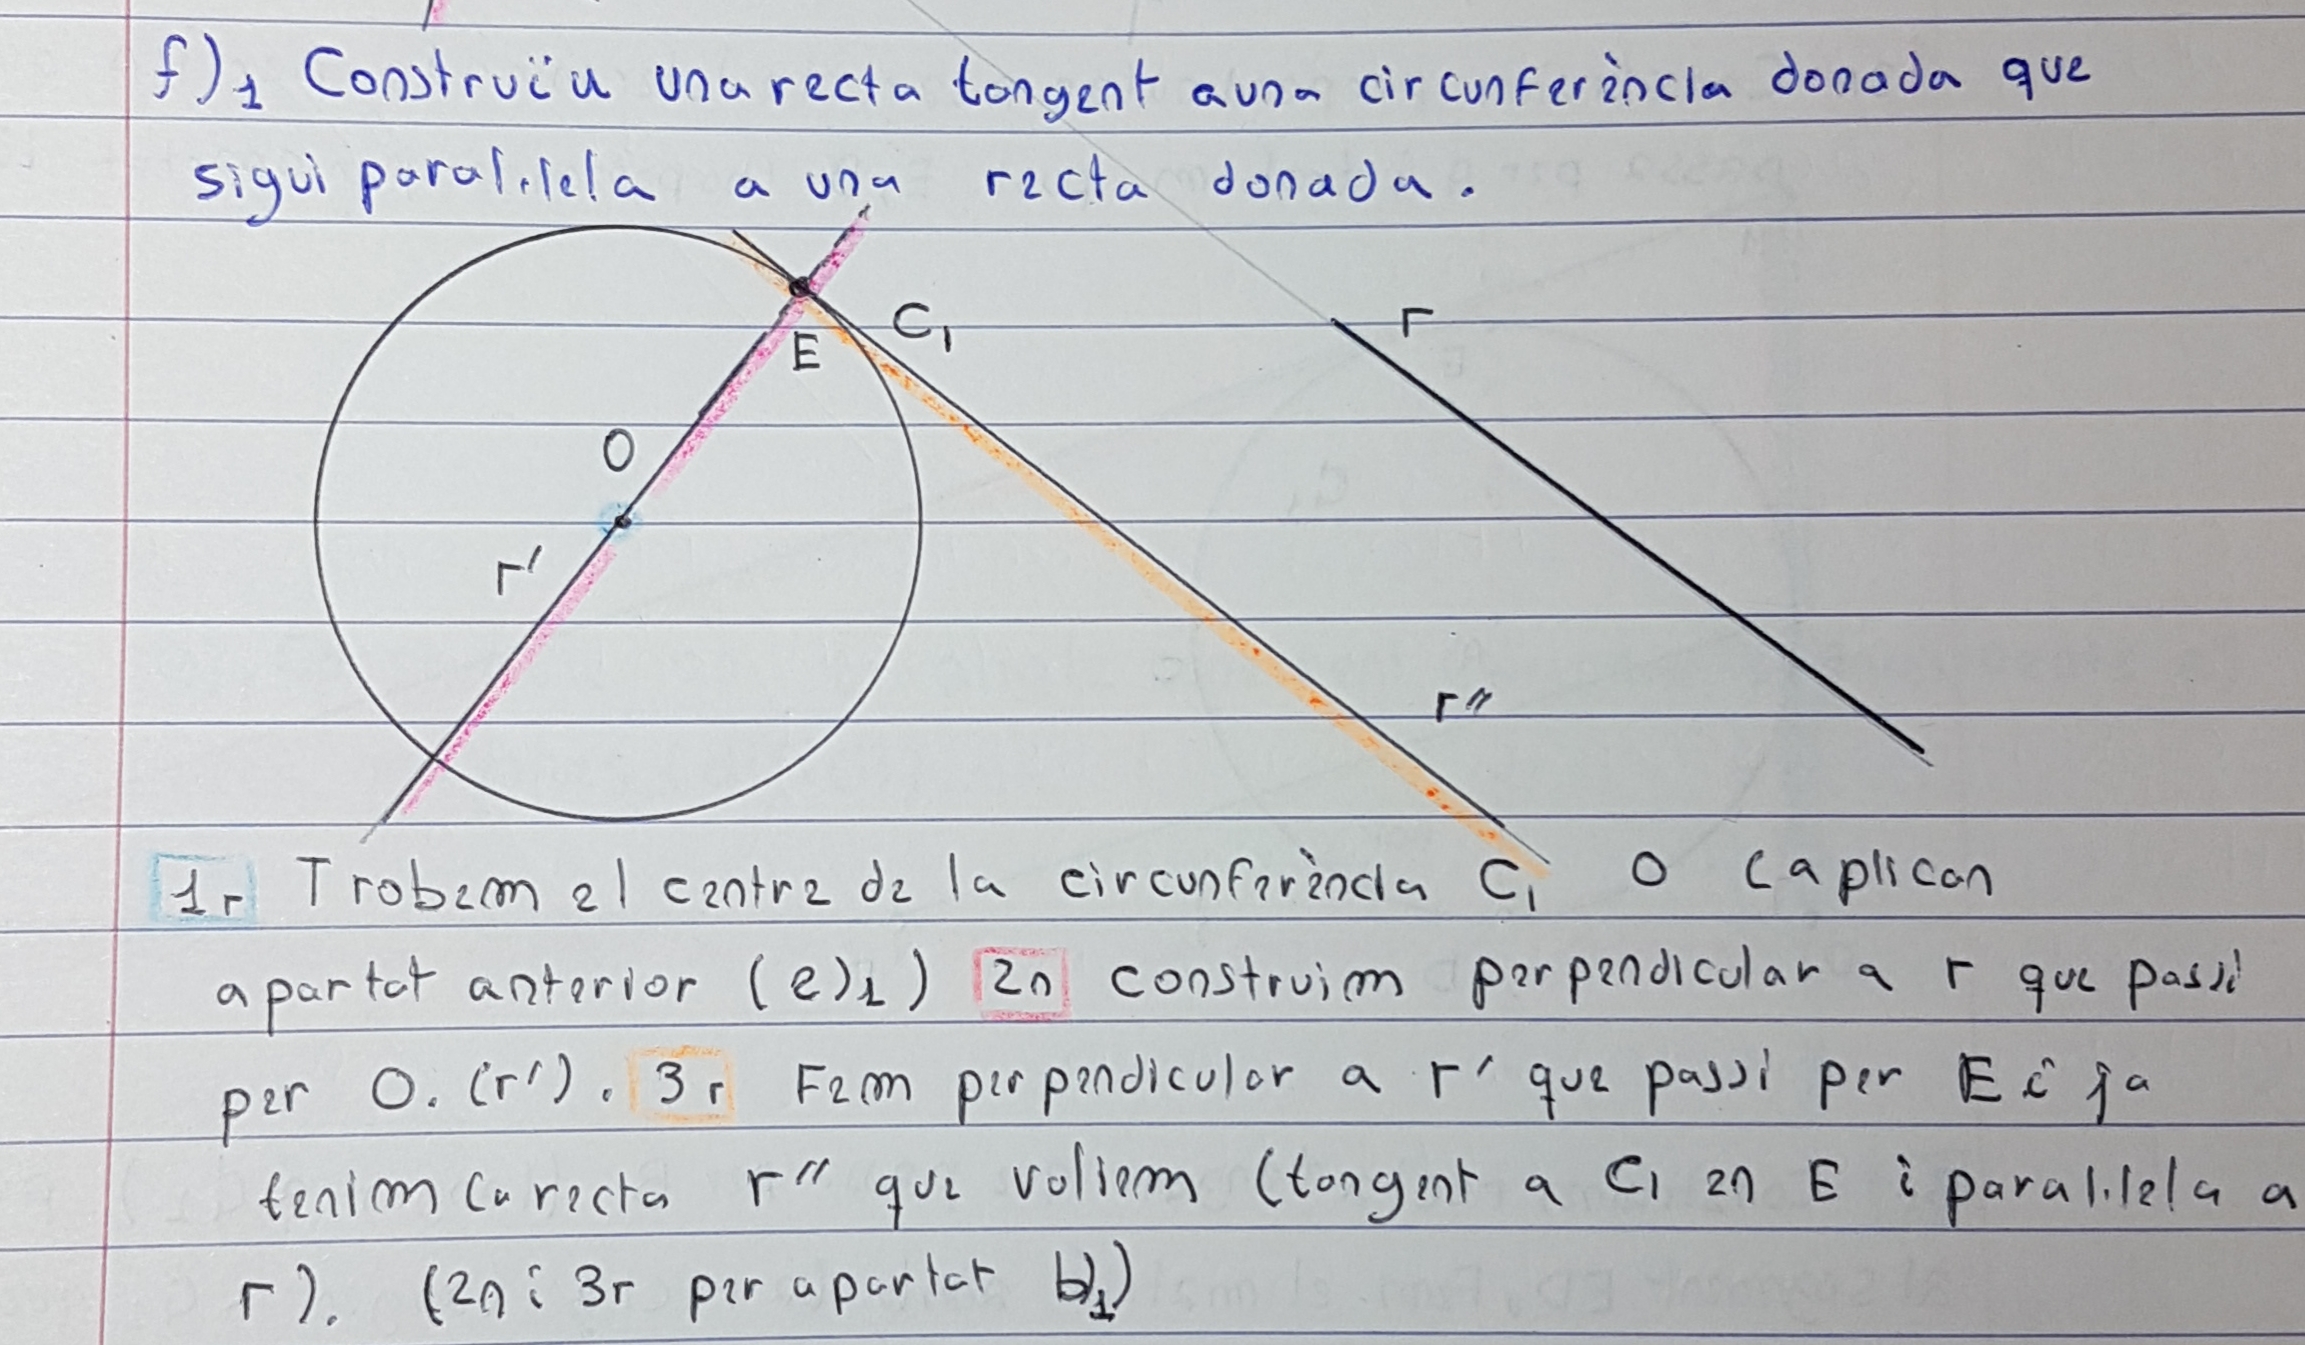 f)1 Construïu una recta tangent a una circunferència donada que
sigui paral.lela a una recta donada.
C1
r
E
O
r'
r''
1r Trobem el centre de la circunferència C1 O (aplican
apartat anterior (e)1) 2n construim perpendicular a r que passi
per O. (r'). 3r Fem perpendicular a r' que passi per E i ja
tenim la recta r'' que voliem (tangent a C1 en E i paral.lela a
r). (2n i 3r per apartat b)1)